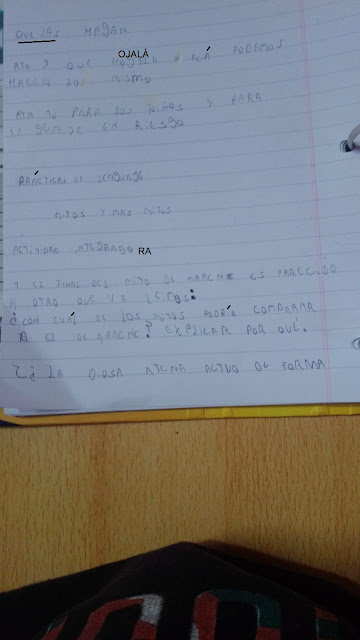 QUE LAS HAGAN
OJALÁ
QUE Y ACÁ PODAMOS
HACER LO MISMO
PARA LOS NIÑOS Y PARA
LA GENTE EN RIESGO
PRÁCTICAS DE LENGUAJE
MITOS Y MAS MITOS
ACTIVIDAD INTEGRADORA
1 EL FINAL DEL MITO DE ES PARECIDO
A OTRO QUE YA LEIMOS:
¿CON CUÁL DE LOS MITOS PODRÍA COMPARAR
A EL DE ? EXPLICAR POR QUÉ.
2¿ LA DIOSA ATENA ACTUO DE FORMA